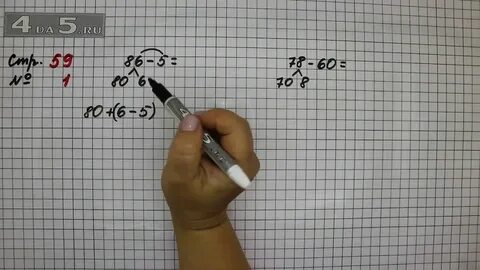 4DA5.RU
Стр. 59
№ 1
86-5=
80 6
80+(6-5)
78-60=
70 8